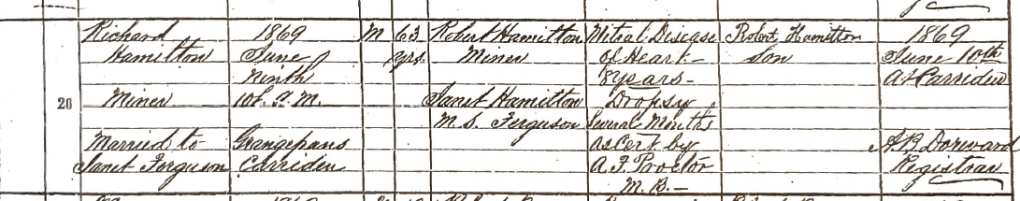 20
Richard
Hamilton
Miner
Married to
Janet Ferguson
1869
June
Ninth
10h. A.M.
Grangepans
Carriden
M
63
yrs.
Robert Hamilton
Miner
Janet Hamilton
M.S. Ferguson
Mitral Disease
of Heart —
8 years —
Dropsy
Several Months
as cert by
A. F. Proctor
M.B. —
Robert Hamilton
Son
1869
June 10th
At Carriden
A.B. Dorward
Registrar